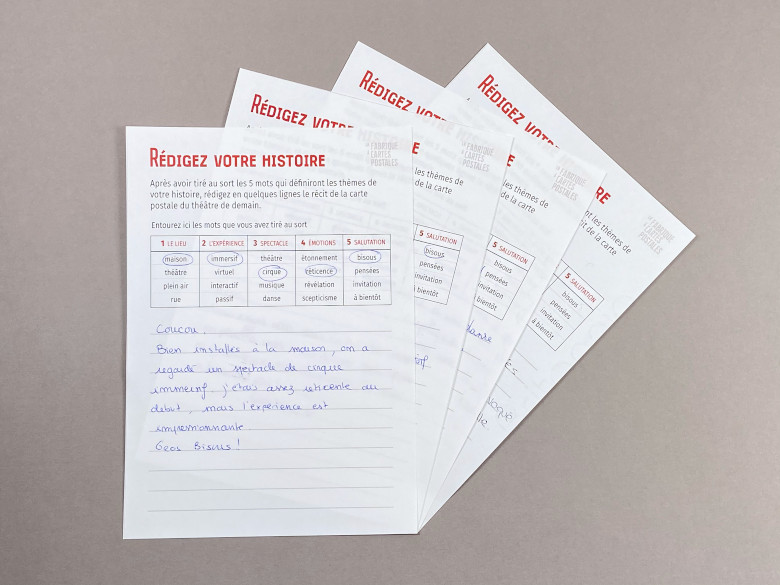 RÉDIGEZ VOTRE HISTOIRE
LA FABRIQUE
À CARTES
POSTALES
Après avoir tiré au sort les 5 mots qui définiront les thèmes de
votre histoire, rédigez en quelques lignes le récit de la carte
postale du théâtre de demain.
Entourez ici les mots que vous avez tiré au sort
1 LE LIEU 2 L'EXPÉRIENCE 3 SPECTACLE 4 ÉMOTIONS 5 SALUTATION
maison immersif théâtre étonnement bisous
théâtre virtuel cirque réticence pensées
plein air interactif musique révélation invitation
rue passif danse scepticisme à bientôt
Coucou,
Bien installés à la maison, on a
regardé un spectacle de cirque
immersif j'étais assez réticente au
début, mais l'expérience est
impressionnante
Gros Bisous !
RÉDIGEZ VOTRE HISTO
RE
les thèmes de
de la carte
5 SALUTATION
bisous
pensées
invitation
à bientôt
RÉDIGEZ VOTRE
RE
FABRIQUE
CARTES
POSTALES
les thèmes de
de la carte
5 SALUTATION
bisous
pensées
invitation
à bientôt
danse
RÉDIGEZ VOTRE
RE
FABRIQUE
CARTES
POSTALES
ont les thèmes de
cit de la carte
5 SALUTATION
bisous
pensées
invitation
à bientôt